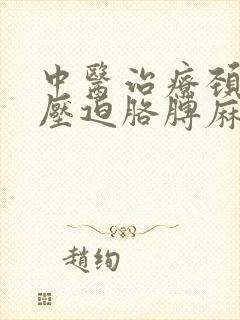 中醫治療頸
壓迫胳膊麻
趙絢